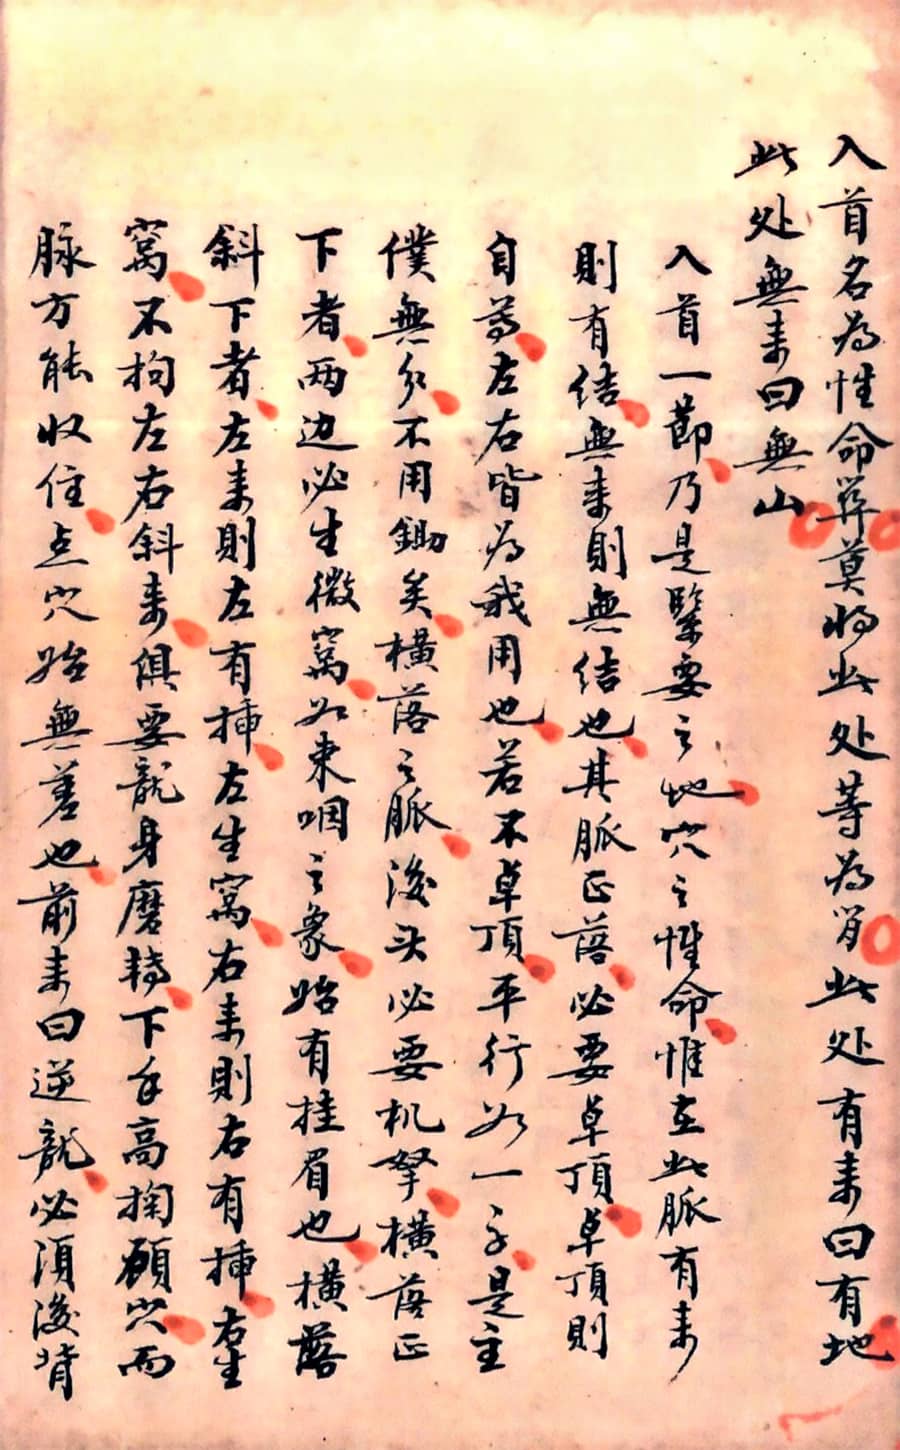 入首名為性命葬莫將此处等為肖此处有来曰有地
此处無来曰無山
入首一節乃是緊要之地穴之性命惟在此脈有来
則有結無来則無結也其脈正落必要卓頂卓頂則
自尊左右皆為我用也若不卓頂平行如一字是主
僕無分不用鋤矣橫落之脈後头必要机拏橫落正
下者两边必生微窩如束咽之象始有挂眉也橫落
斜下者左来則左有揷左生窩右来則右有揷右生
窩不拘左右斜来俱要龍身磨轉下手高掬顧穴而
脉方能收住点穴始無差也前来曰逆龍必須後背